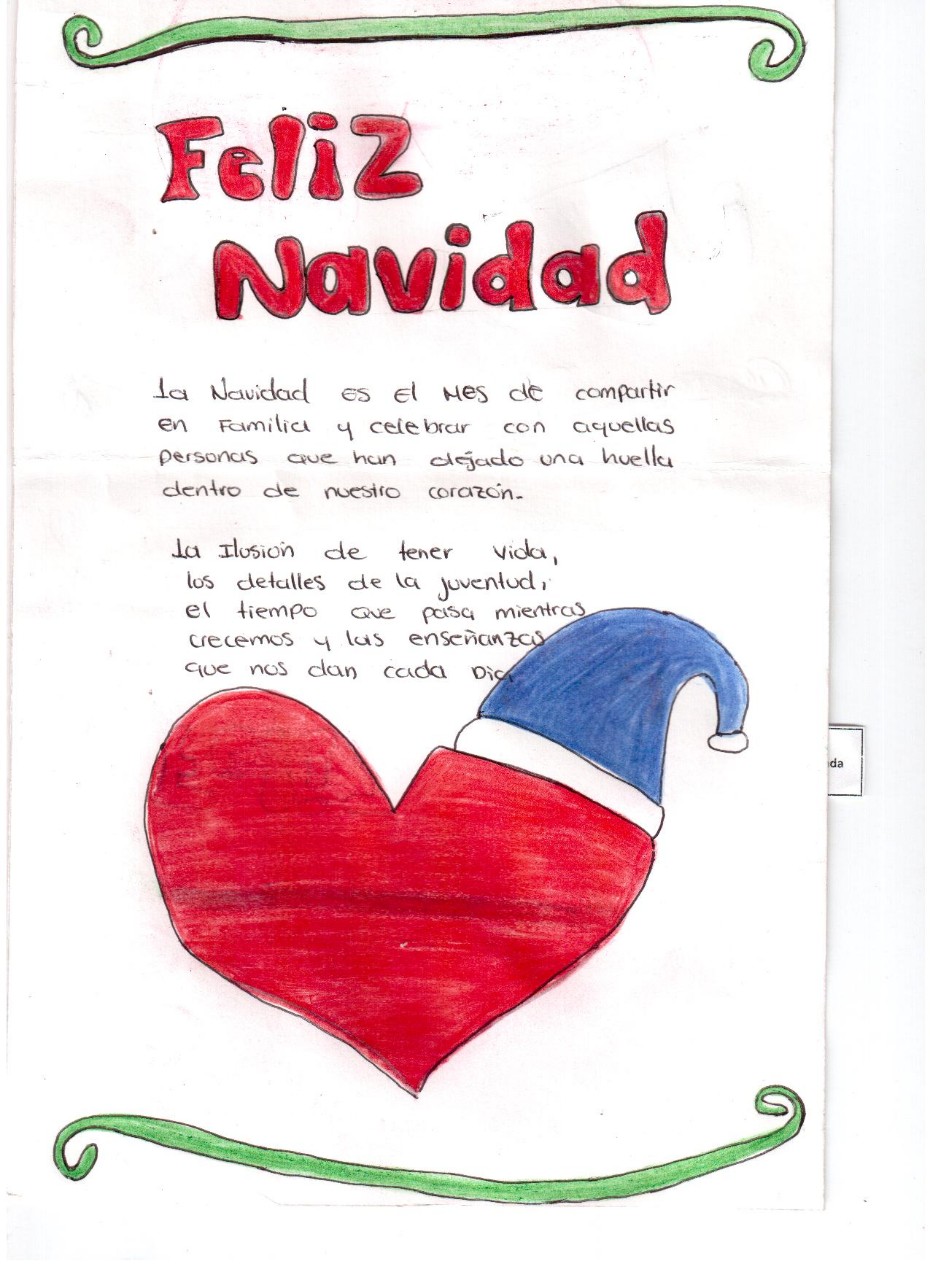 Feliz
Navidad
La Navidad es el Mes de compartir
en Familia y celebrar con aquellas
personas que han dejado una huella
dentro de nuestro corazón.
La Ilusión de tener vida,
los detalles de la juventud,
el tiempo que pasa mientras
crecemos y las enseñanzas
que nos dan cada Dia.
da